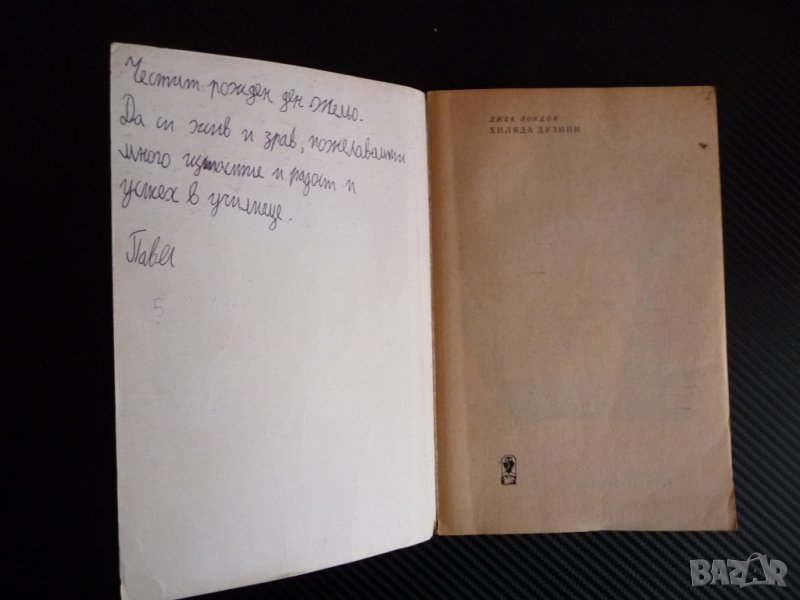 Честит рожден ден Жельо.
Да си жив и здрав, пожелавам ти
много щастие и радост и
успех в училище.
Павел
5
ДЖЕК ЛОНДОН
ХИЛЯДА ДУЗИНИ
BAZAR